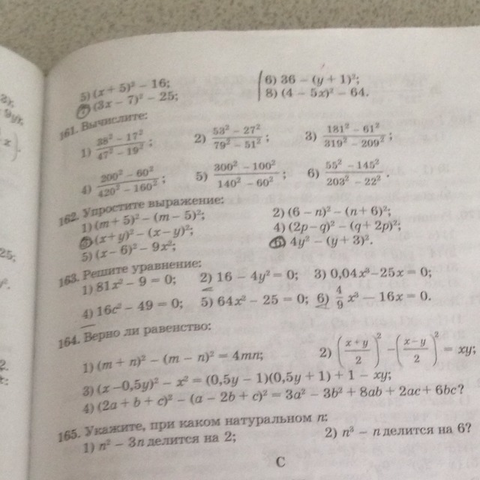 5) (x + 5)² − 16; 6) 36 − (y + 1)²;
7) (3x − 7)² − 25; 8) (4 − 5x)² − 64.
161. Вычислите:
1) (38² − 17²)/(47² − 19²); 2) (53² − 27²)/(79² − 51²); 3) (181² − 61²)/(319² − 209²);
4) (200² − 60²)/(420² − 160²); 5) (300² − 100²)/(140² − 60²); 6) (55² − 145²)/(203² − 22²).
162. Упростите выражение:
1) (m + 5)² − (m − 5)²; 2) (6 − n)² − (n + 6)²;
3) (x + y)² − (x − y)²; 4) (2p − q)² − (q + 2p)²;
5) (x − 6)² − 9x²; 6) 4y² − (y + 3)².
163. Решите уравнение:
1) 81x² − 9 = 0; 2) 16 − 4y² = 0; 3) 0,04x³ − 25x = 0;
4) 16c² − 49 = 0; 5) 64x² − 25 = 0; 6) 4/9 x³ − 16x = 0.
164. Верно ли равенство:
1) (m + n)² − (m − n)² = 4mn; 2) ((x + y)/2)² − ((x − y)/2)² = xy;
3) (x − 0,5y)² − x² = (0,5y − 1)(0,5y + 1) + 1 − xy;
4) (2a + b + c)² − (a − 2b + c)² = 3a² − 3b² + 8ab + 2ac + 6bc?
165. Укажите, при каком натуральном n:
1) n² − 3n делится на 2; 2) n³ − n делится на 6?
С